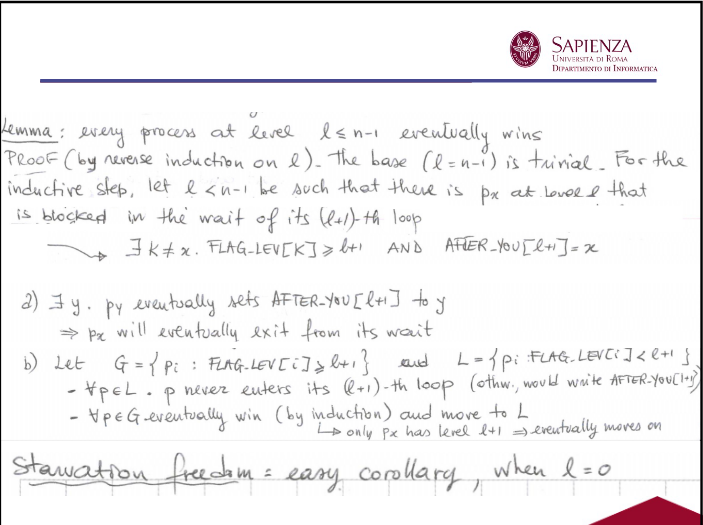 SAPIENZA
UNIVERSITÀ DI ROMA
DIPARTIMENTO DI INFORMATICA
Lemma : every process at level ℓ ≤ n-1 eventually wins
PROOF (by reverse induction on ℓ)_ The base (ℓ = n-1) is trivial_ For the
inductive step, let ℓ < n-1 be such that there is px at level ℓ that
is blocked in the wait of its (ℓ+1)-th loop
→ ∃ K ≠ x . FLAG_LEV[K] ≥ ℓ+1 AND AFTER_YOU[ℓ+1] = x
a) ∃ y . py eventually sets AFTER_YOU[ℓ+1] to y
⇒ px will eventually exit from its wait
b) Let G = { pi : FLAG_LEV[i] ≥ ℓ+1 } and L = { pi : FLAG_LEV[i] < ℓ+1 }
- ∀p∈L . p never enters its (ℓ+1)-th loop (othw., would write AFTER_YOU[ℓ+1])
- ∀p∈G eventually win (by induction) and move to L
↳ only px has level ℓ+1 ⇒ eventually moves on
Starvation freedom = easy corollary, when ℓ = 0